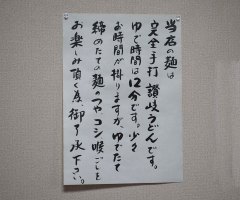 当店の麺は
完全手打 讃岐うどんです。
ゆで時間は12分です。少々
お時間が掛りますが、ゆでたて
締めたての麺のつや コシ 喉ごしを
お楽しみ頂く為、御了承下さい。